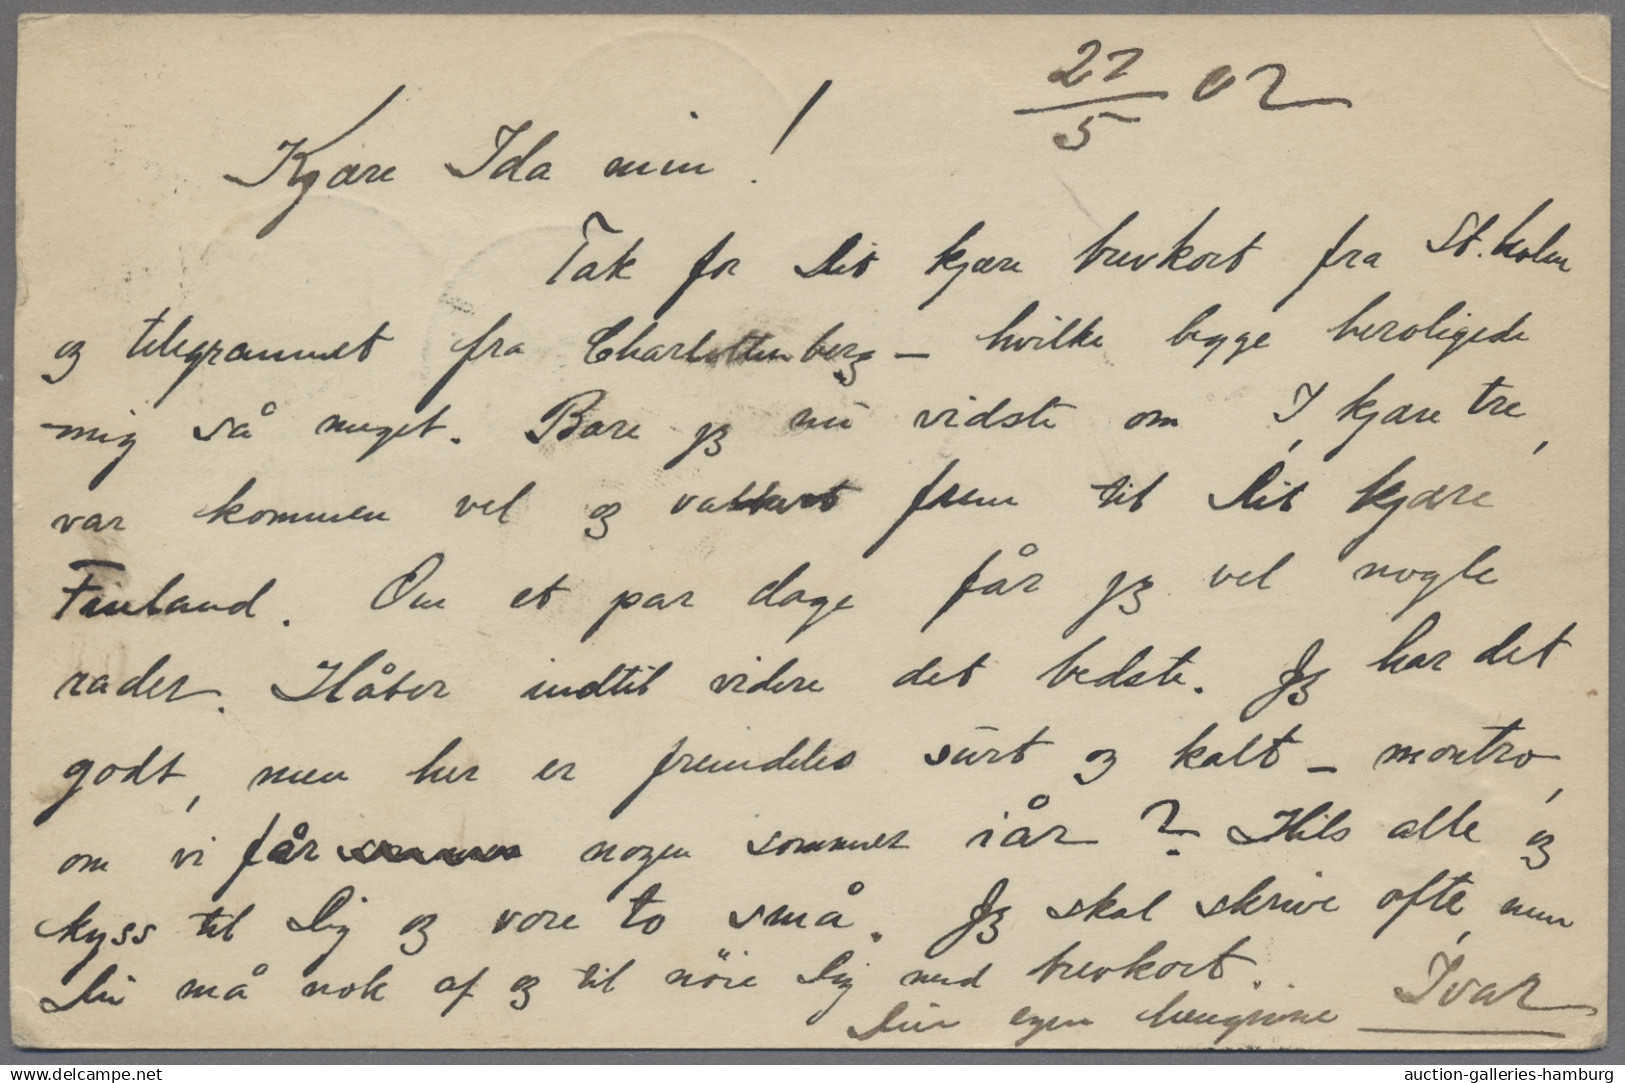 27/5 02
Kjære Ida min!
Tak for Dit kjære brevkort fra St.holm
og telegrammet fra Charlottenberg – hvilke begge beroligede
mig så meget. Bare jeg nu vidste om I, kjære tre,
var kommen vel og vakkert frem til Dit kjære
Finland. Om et par dage får jeg vel nogle
rader. Håber indtil videre det bedste. Jeg har det
godt, men her er fremdeles surt og kalt – montro,
om vi får nogen sommer iår? Hils alle og
kyss til Dig og vore to små. Jeg skal skrive ofte, men
Du må nok af og til nöie Dig med brevkort.
Din egen hengivne Ivar
www.delcampe.net
auction-galleries-hamburg